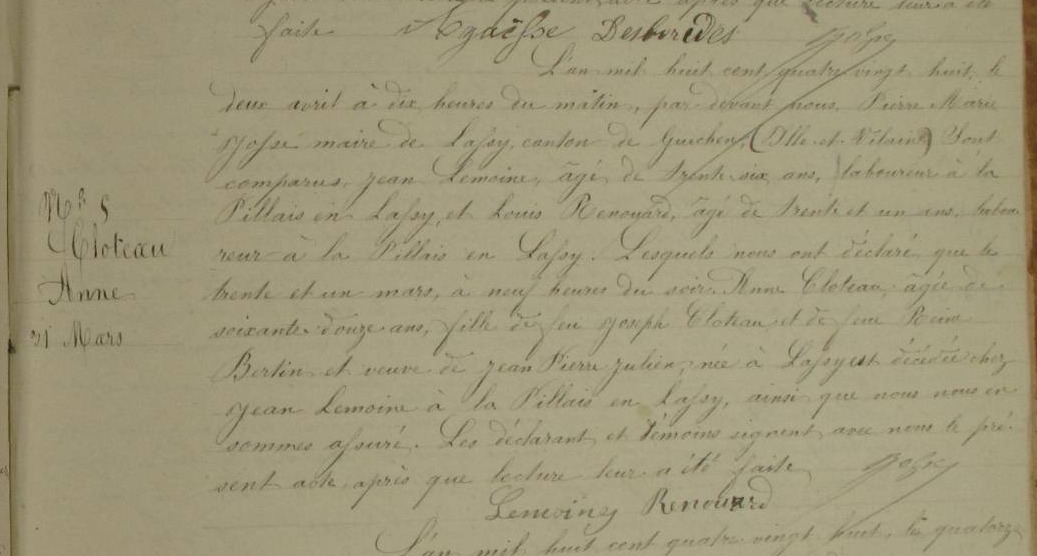 après que lecture leur a été
faite Agaësse Desbordes Josse
L'an mil huit cent quatre vingt huit, le
deux avril à dix heures du matin, par devant nous, Pierre Marie
Josse maire de Lassy, canton de Guichen, (Ille-et-Vilaine) Sont
comparus, Jean Lemoine, âgé de trente six ans, laboureur à la
Pillais en Lassy, et Louis Renouard, âgé de trente et un ans, labou-
reur à la Pillais en Lassy. Lesquels nous ont déclaré que le
trente et un mars, à neuf heures du soir, Anne Cloteau, âgée de
soixante-douze ans, fille de feu Joseph Cloteau et de feue Reine
Bertin et veuve de Jean Pierre Julien, née à Lassy est décédée chez
Jean Lemoine à la Pillais en Lassy, ainsi que nous nous en
sommes assuré. Les déclarant et témoins signent avec nous le pré-
sent acte, après que lecture leur a été faite
Lemoine Renouard Josse
L'an mil huit cent quatre vingt huit, le quatorze
Cloteau
Anne
31 Mars